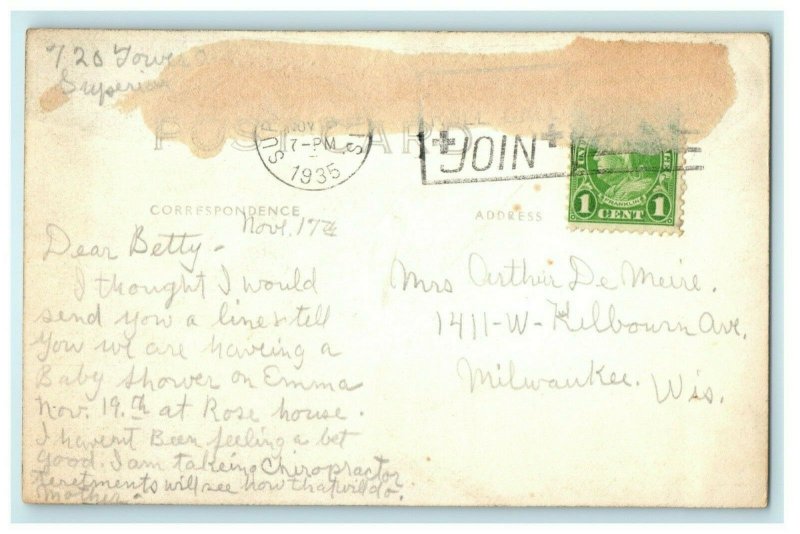 720 Tower
Superior
POST CARD
SUP
NOV
7-PM
1935
IS
JOIN
FRANKLIN
1 CENT 1
CORRESPONDENCE
ADDRESS
Nov. 17th
Dear Betty -
I thought I would
send you a line & tell
you we are haveing a
Baby Shower on Emma
Nov. 19.th at Rose house.
I havent Been feeling a bet
good. I am takeing Chiropractor
teretments will see how that will do.
Mother -
Mrs Arthur De Meire.
1411-W-Kilbourn Ave.
Milwaukee. Wis.